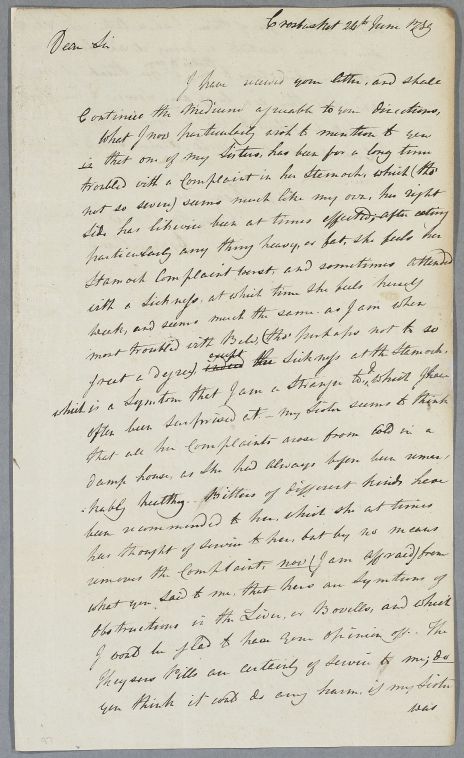 Crosbasket 24th June 1789
Dear Sir
I have received your letter, and shall
Continue the Medicine agreable to your directions,
What I now particularly wish to mention to you
is that one of my Sisters, has been for a long time
troubled with a Complaint in her Stomach, which (tho'
not so severe) seems much like my own, her right
Side has likewise been at times affected, after eating
particularly any thing heavy, or fat, she feels her
Stamoch Complaint worst, and sometimes attended
with a Sickness, at which time she feels herself
weak, and seems much the same as I am when
most troubled with Bile (tho' perhaps not to so
great a degree) except the Sickness at the Stamoch,
which is a Symtom that I am a Stranger to, & which I have
often been surprised at - my Sister seems to think
that all her Complaints arose from Cold in a
damp house, as she had always before been remar,
:kably healthy - Bitters of different kinds have
been recommended to her, which she at times
has thought of service to her, but by no means
removes the Complaint, now (I am affraid) from
what you said to me, that hers are Symtoms of
Obstructions in the Liver, or Bowells, and which
I woud be glad to have your opinion off. The
Keysers Pills are certainly of service to me, do
you think it woud do any harm, if my Sister
was